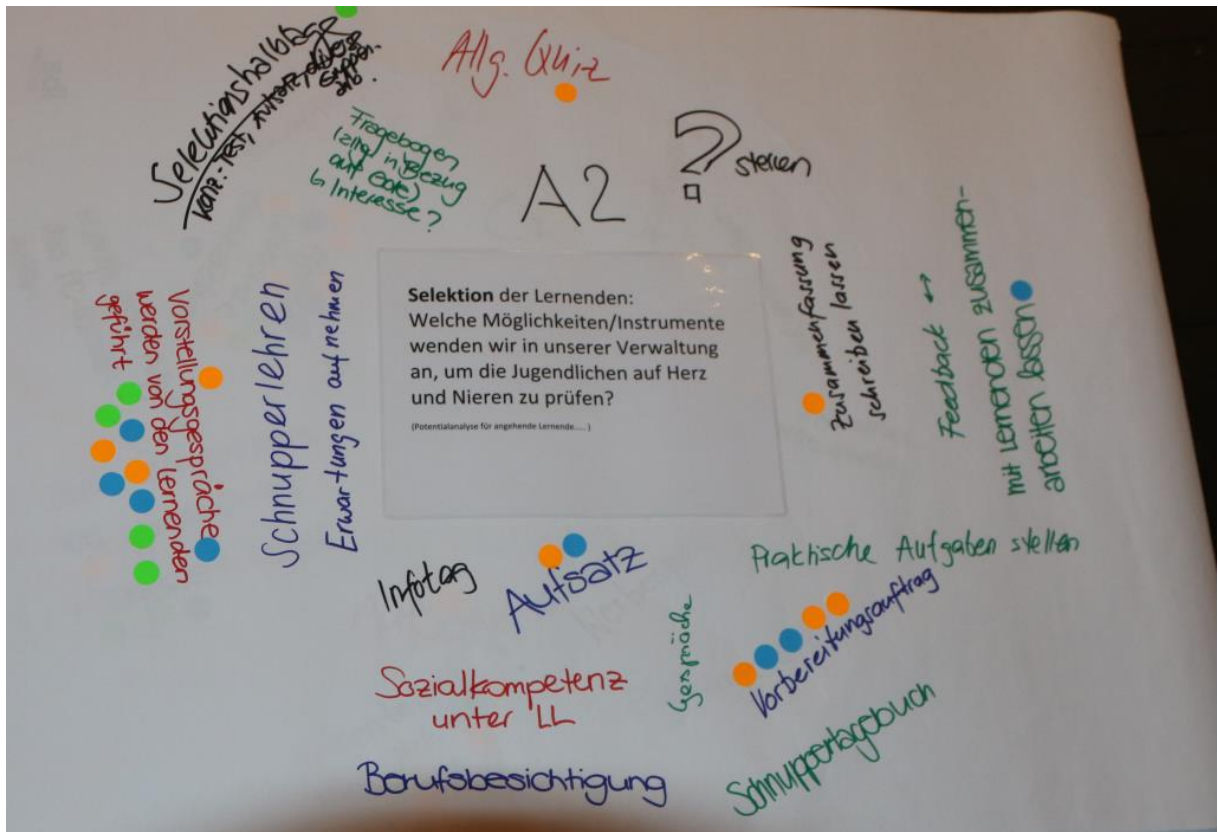 Selektionshalbtage
Kanz.-Test, Aufsatz, diverse
Allg. Quiz
Fragebogen
in Bezug
auf
↳ Interesse?
A2
? stellen
Selektion der Lernenden:
Welche Möglichkeiten/Instrumente
wenden wir in unserer Verwaltung
an, um die Jugendlichen auf Herz
und Nieren zu prüfen?
(Potentialanalyse für angehende Lernende..... )
Vorstellungsgespräche
werden von den Lernenden
geführt
Schnupperlehren
Erwartungen aufnehmen
Zusammenfassung
schreiben lassen
Feedback ↔
mit Lernenden zusammen-
arbeiten lassen
Infotag
Aufsatz
Praktische Aufgaben stellen
Gespräche
Vorbereitungsauftrag
Sozialkompetenz
unter LL
Berufsbesichtigung
Schnuppertagebuch